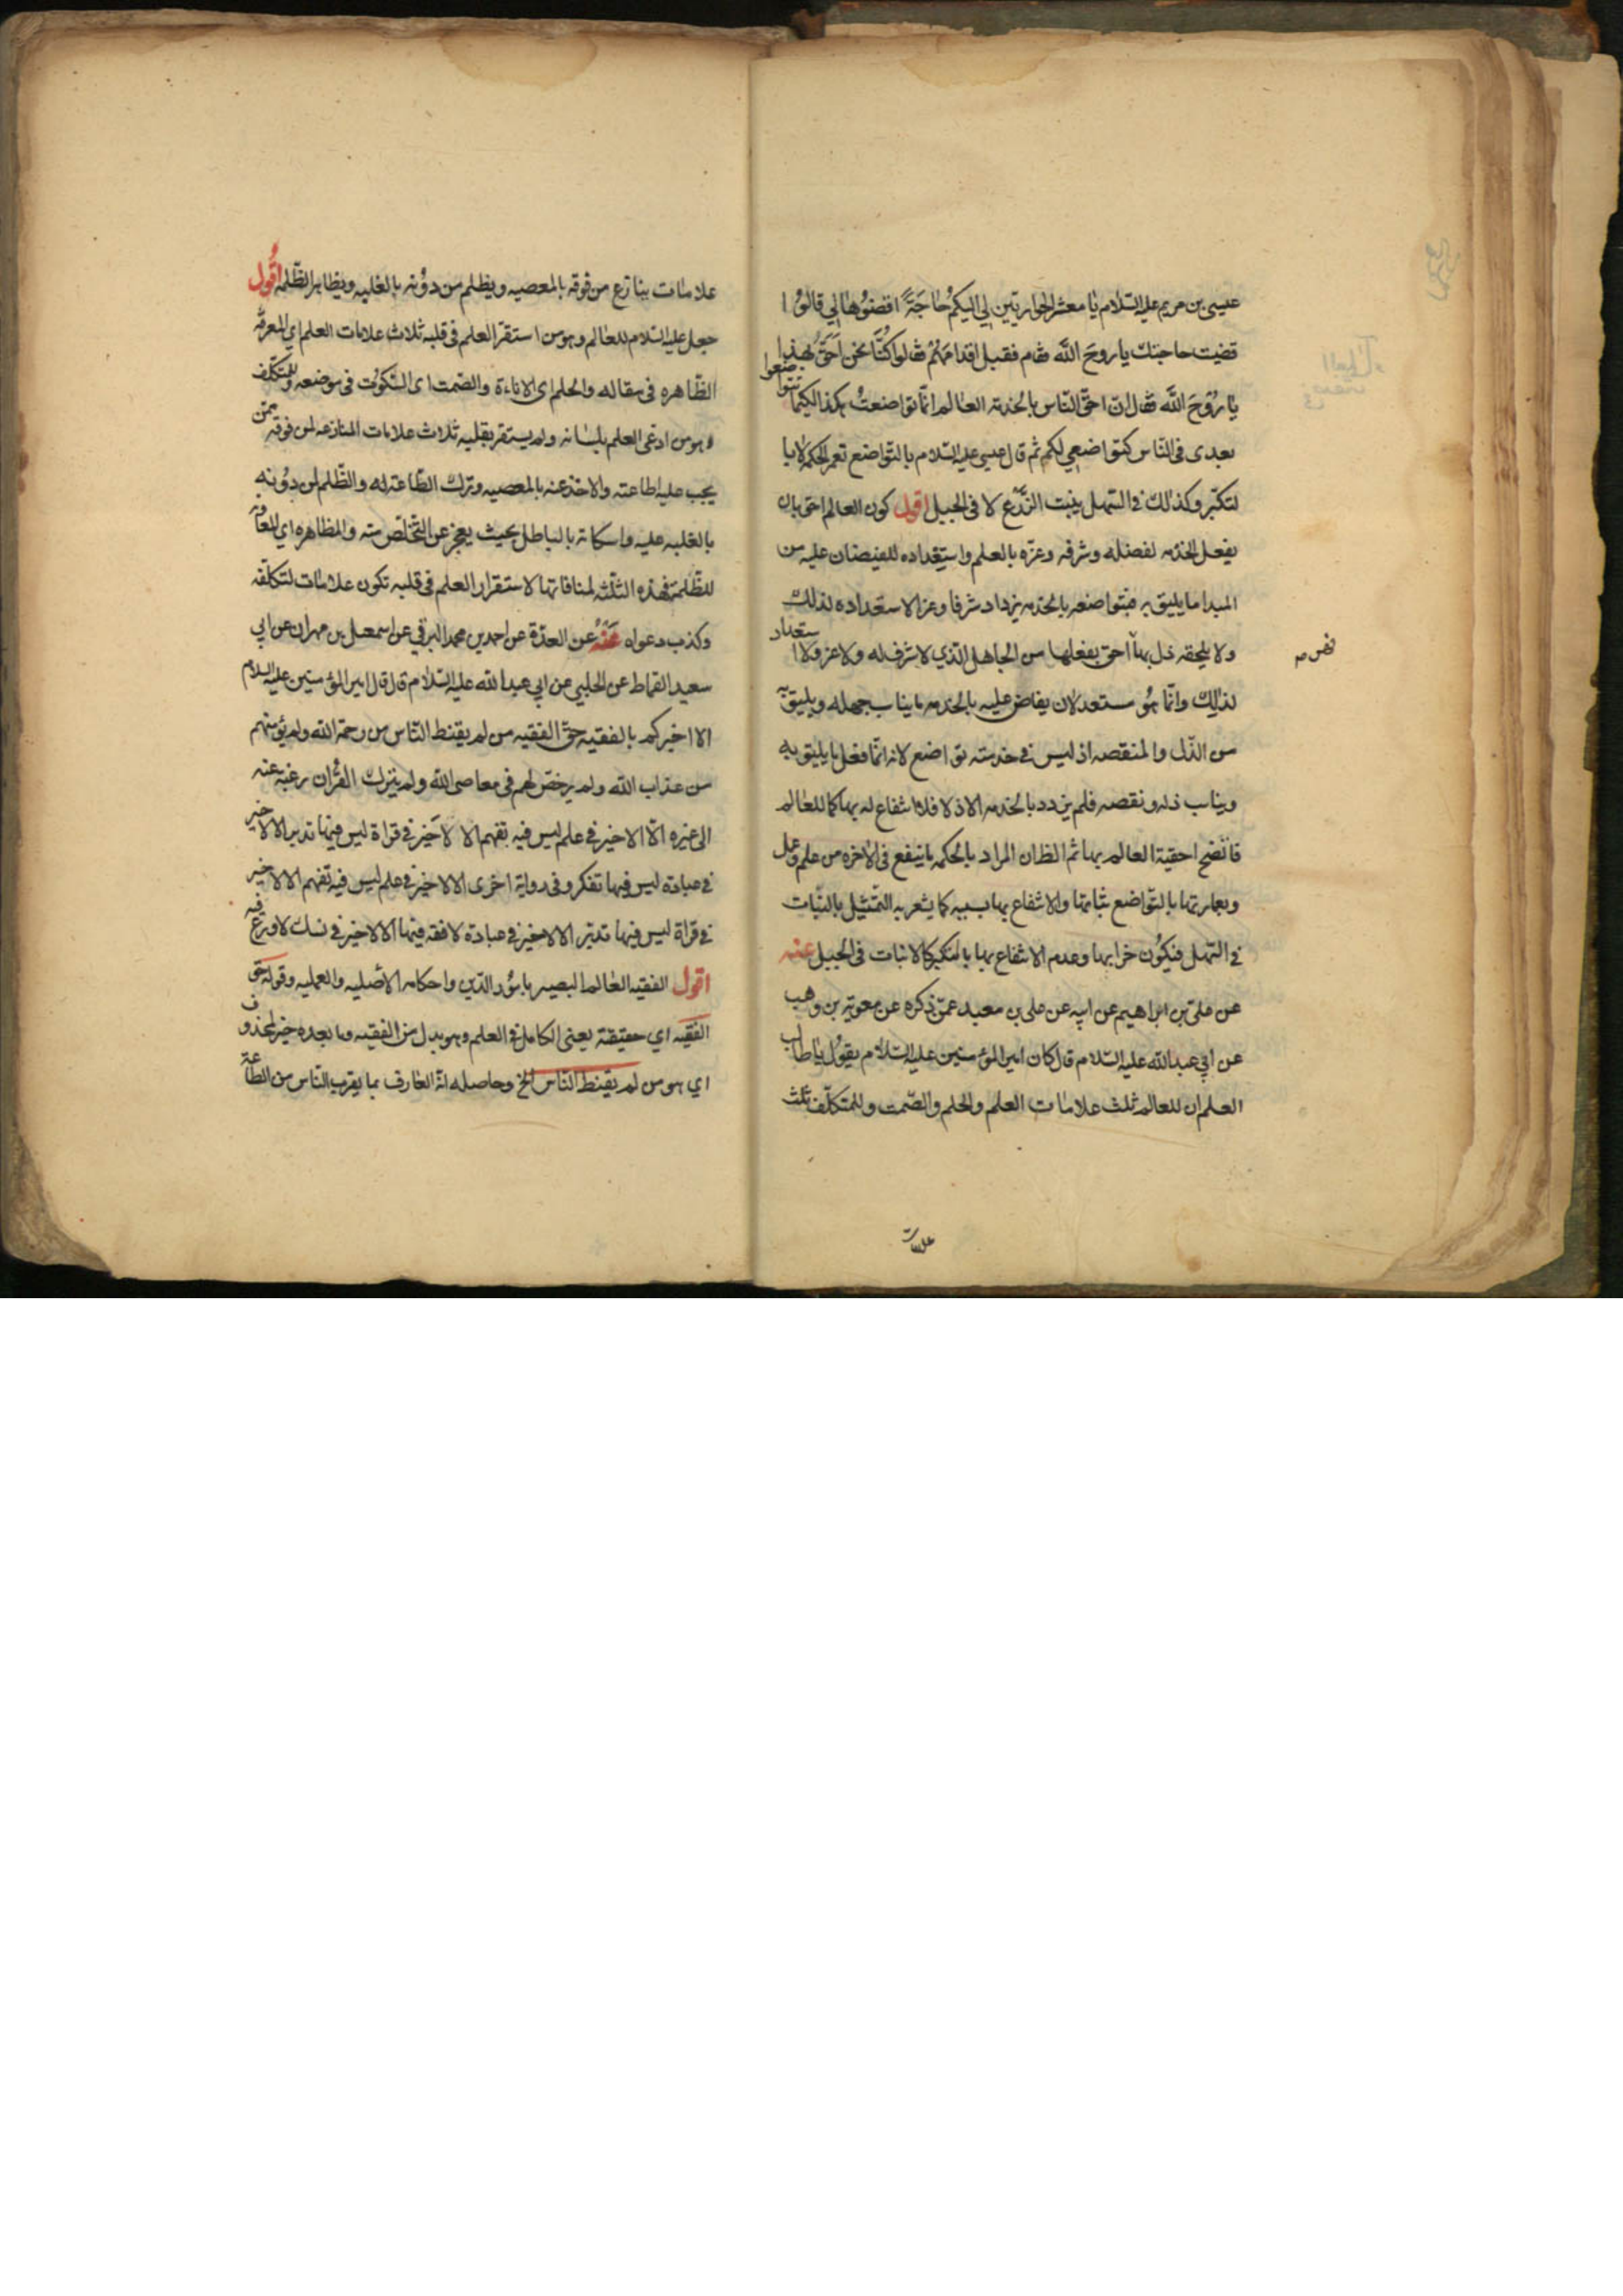 عيسى بن مريم عليه السلام يا معشر الحواريين لي اليكم حاجة اقضوها لي قالوا
قضيت حاجتك يا روح الله فقام فقبل اقدامهم فقالوا كنا نحن احق بهذا
يا روح الله فقال ان احق الناس بالخدمة العالم انما تواضعت هكذا لكيما تتواضعوا
بعدي في الناس كتواضعي لكم ثم قال عيسى عليه السلام بالتواضع تعمر الحكمة لا با
لتكبر وكذلك في السهل ينبت الزرع لا في الجبل اقول كون العالم احق بان
يفعل الخدمه لفضله وشرفه وعزه بالعلم واستعداده للفيضان عليه من
المبدا ما يليق به فبتواضعه بالخدمه يزداد شرفا وعزا لاستعداده لذلك
ولا يلحقه ذل بها احق بفعلها من الجاهل الذي لا شرف له ولا عز ولا استعداد
نقص م
لذلك وانما هو مستعد لان يفاض عليه بالخدمه ما يناسب جهله ويليق به
من الذل والمنقصه اذ ليس في خدمته تواضع لانه انما فعل ما يليق به
ويناسب ذله ونقصه فلم يزدد بالخدمه الا ذلا فلا انتفاع له بها كما للعالم
فاتضح احقية العالم بها ثم الظان المراد بالحكمه ما ينفع في الاخره من علم وعمل
وبعمارتها بالتواضع نباتها والانتفاع بها بسببه كما يشعر به التمثيل بالنبات
في السهل فيكون خرابها وعدم الانتفاع بها بالتكبر كالانبات في الجبل عنه
عن علي بن ابراهيم عن ابيه عن علي بن معبد عمن ذكره عن معوية بن وهب
عن ابي عبد الله عليه السلام قال كان امير المؤمنين عليه السلام يقول يا طالب
العلم ان للعالم ثلث علامات العلم والحلم والصمت وللمتكلف ثلث
علامات
علامات ينازع من فوقه بالمعصيه ويظلم من دونه بالغلبه ويظاهر الظلمة اقول
جعل عليه السلام للعالم وهو من استقر العلم في قلبه ثلاث علامات العلم اي المعرفة
الظاهره في مقاله والحلم اي الاناءة والصمت اي السكوت في موضعه وللمتكلف
وهو من ادعى العلم بلسانه ولم يستقر بقلبه ثلاث علامات المنازعه لمن فوقه ممن
يجب عليه اطاعته والاخذ عنه بالمعصيه وترك الطاعة له والظلم لمن دونه
بالغلبه عليه واسكاته بالباطل بحيث يعجز عن التخلص منه والمظاهره اي المعاونة
للظلمة فهذه الثلثه لمنافاتها لاستقرار العلم في قلبه تكون علامات لتكلفه
وكذب دعواه عنه عن العدة عن احمد بن محمد البرقي عن اسمعيل بن مهران عن ابي
سعيد القماط عن الحلبي عن ابي عبد الله عليه السلام قال قال امير المؤمنين عليه السلام
الا اخبركم بالفقيه حق الفقيه من لم يقنط الناس من رحمة الله ولم يؤمنهم
من عذاب الله ولم يرخص لهم في معاصي الله ولم يترك القران رغبة عنه
الى غيره الا لا خير في علم ليس فيه تفهم الا لا خير في قراة ليس فيها تدبر الا لا خير
في عبادة ليس فيها تفكر وفي رواية اخرى الا لا خير في علم ليس فيه تفهم الا لا خير
في قراة ليس فيها تدبر الا لا خير في عبادة لا فقه فيها الا لا خير في نسك لا ورع فيه
اقول الفقيه العالم البصير بامور الدين واحكامه الاصليه والعمليه وقوله حق
الفقيه اي حقيقة يعني الكامل في العلم وهو بدل من الفقيه وما بعده خبر لمحذوف
اي هو من لم يقنط الناس الخ وحاصله ان العارف بما يقرب الناس من الطاعة